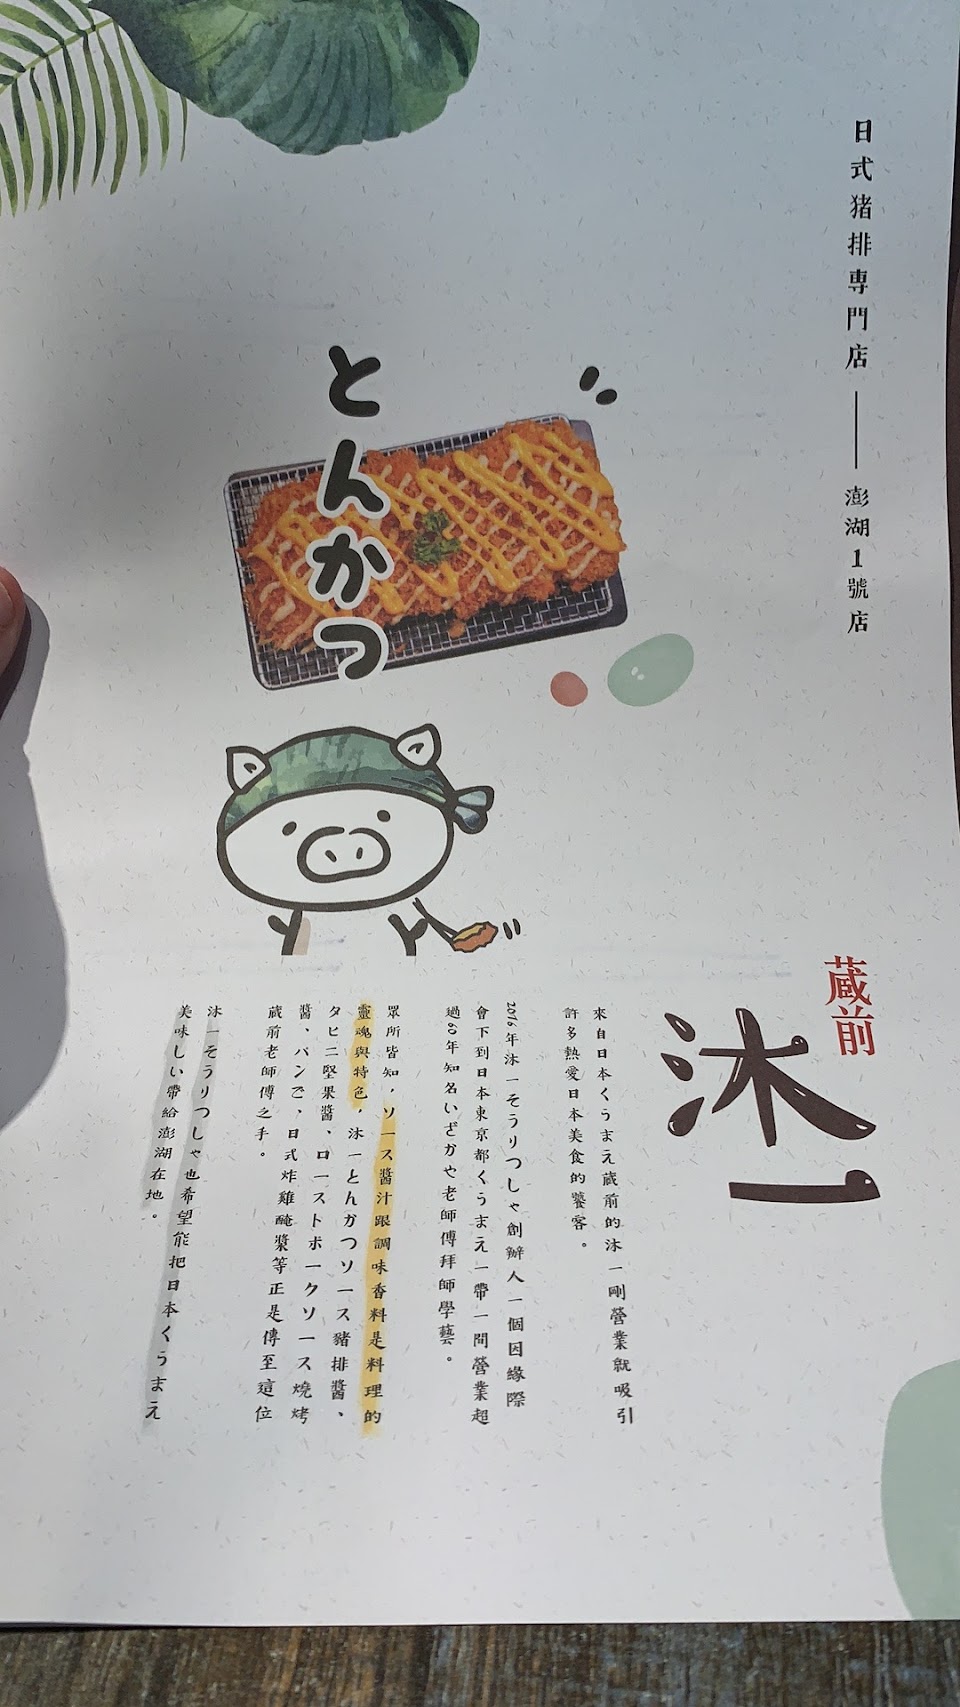 日式猪排專門店——澎湖1號店
蔵前
沐一
とんかつ
來自日本くうまえ蔵前的沐一剛營業就吸引
許多熱愛日本美食的饕客。
2016年沐一そうりつしゃ創辦人一個因緣際
會下到日本東京都くうまえ一帶一間營業超
過60年知名いざかや老師傅拜師學藝。
眾所皆知，ソース醬汁跟調味香料是料理的
靈魂與特色，沐一とんかつソース豬排醬、
タヒニ堅果醬、ローストポークソース燒烤
醬、パンで、日式炸雞醃漿等正是傳至這位
蔵前老師傅之手。
沐一そうりつしゃ也希望能把日本くうまえ
美味しい帶給澎湖在地。